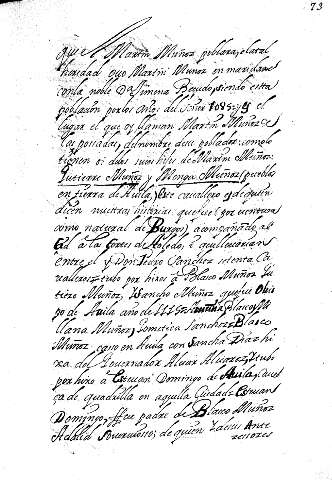 73
que Martin Muñoz poblara, y la tal
heredad que Martin Munoz en maridarse
con la noble D. Simena Bezudo, siendo esta
poblacion por los años del Señor 1085, y el
lugar el que oy llaman Martin Muñoz de
las posadas, del nombre de su poblador como lo
tienen oi dos suios hijos de Martin Muñoz
Gutierre Muñoz y Menga Muñoz pueblos
en tierra de Avila, Este cavallero y de quien
dicen nuestras historias que fue (por ventura
como natural de Burgos) acompañando al
Cid a las Cortes de Toledo, e
entre el y Don Pedro Sanchez setenta Ca
valleros tubo por hijos a Blasco Muñoz Gu
tiere Muñoz, Sancho Muñoz que fue Obis
po de Avila año de Blasco Mi
llana Muñoz, Sanchez Blasco
Muñoz caso en Avila con Sancha Diaz hi
xa del Governador Alvar Alvarez, tubo
por hixo a Estevan Domingo de Avila, cave
ça de quadrilla en aquella Ciudad Estevan
Domingo, fue padre de Blasco Muñoz
Adalid de quien Zacus Ante
cesores